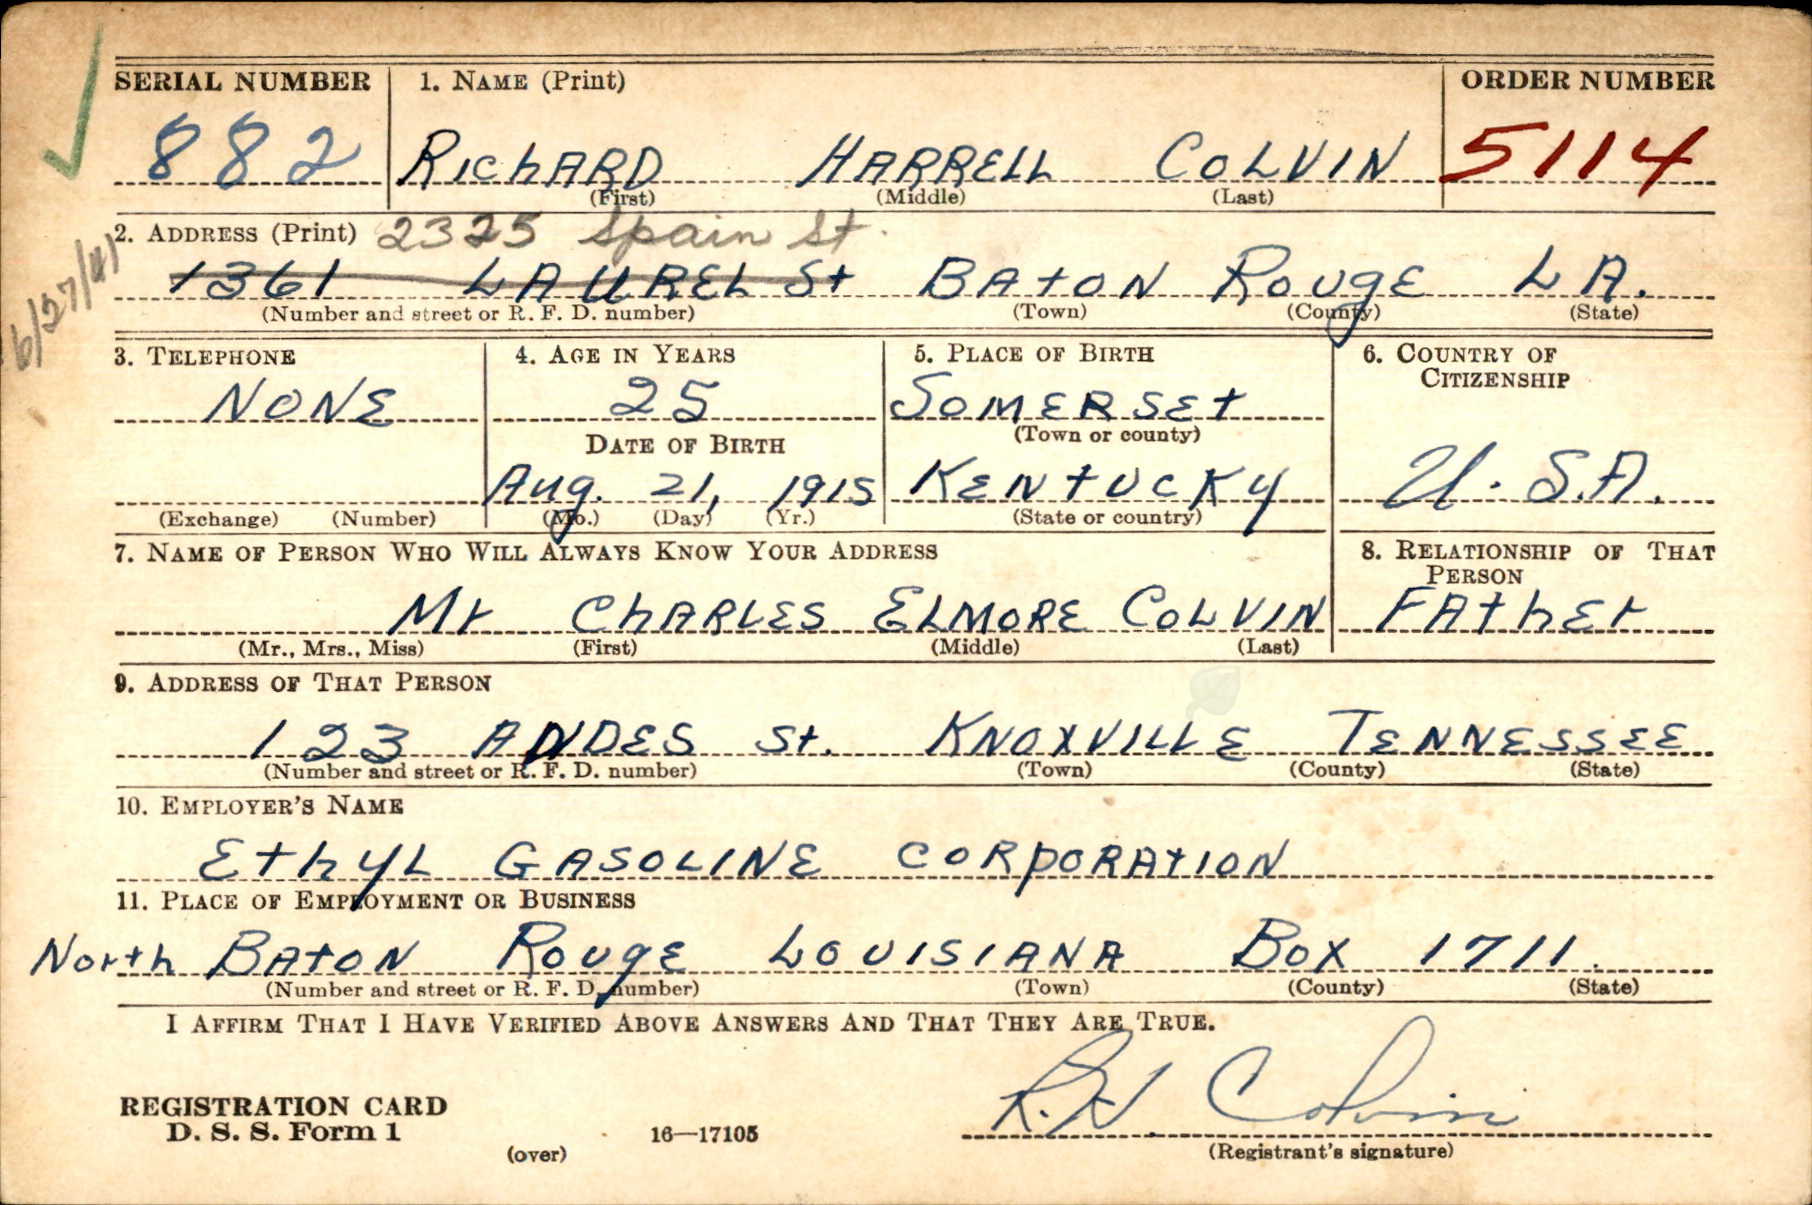 SERIAL NUMBER 1. NAME (Print) ORDER NUMBER
882 RIchARD HARRELL COLVIN 5114
(First) (Middle) (Last)
2. ADDRESS (Print) 2325 Spain St.
1361 LAUREL St BATON ROUgE LA.
6/27/41
(Number and street or R. F. D. number) (Town) (County) (State)
3. TELEPHONE 4. AGE IN YEARS 5. PLACE OF BIRTH 6. COUNTRY OF
CITIZENSHIP
NONE 25 SOMERSEt
DATE OF BIRTH (Town or county)
Aug. 21, 1915 KENtUCKy U.S.A.
(Exchange) (Number) (Mo.) (Day) (Yr.) (State or country)
7. NAME OF PERSON WHO WILL ALWAYS KNOW YOUR ADDRESS 8. RELATIONSHIP OF THAT
PERSON
Mr ChARLES ELMORE COLVIN FAthEr
(Mr., Mrs., Miss) (First) (Middle) (Last)
9. ADDRESS OF THAT PERSON
123 ANDES St. KNOXVILLE TENNESSEE
(Number and street or R. F. D. number) (Town) (County) (State)
10. EMPLOYER'S NAME
EthyL GASOLINE CORpORAtION
11. PLACE OF EMPLOYMENT OR BUSINESS
North BAtON ROUgE LOUISIANA BOX 1711.
(Number and street or R. F. D. number) (Town) (County) (State)
I AFFIRM THAT I HAVE VERIFIED ABOVE ANSWERS AND THAT THEY ARE TRUE.
R. H. Colvin
REGISTRATION CARD
D. S. S. Form 1 16—17105
(over) (Registrant's signature)